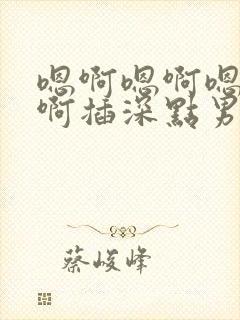 嗯啊嗯啊嗯
啊插深點男
蔡峻峰